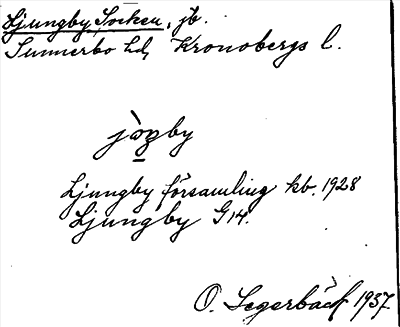 Ljungby Socken, jb.
Sunnerbo hd, Kronobergs l.
Ljungby församling kb. 1928
Ljungby G14.
O. Segerbäck 1937